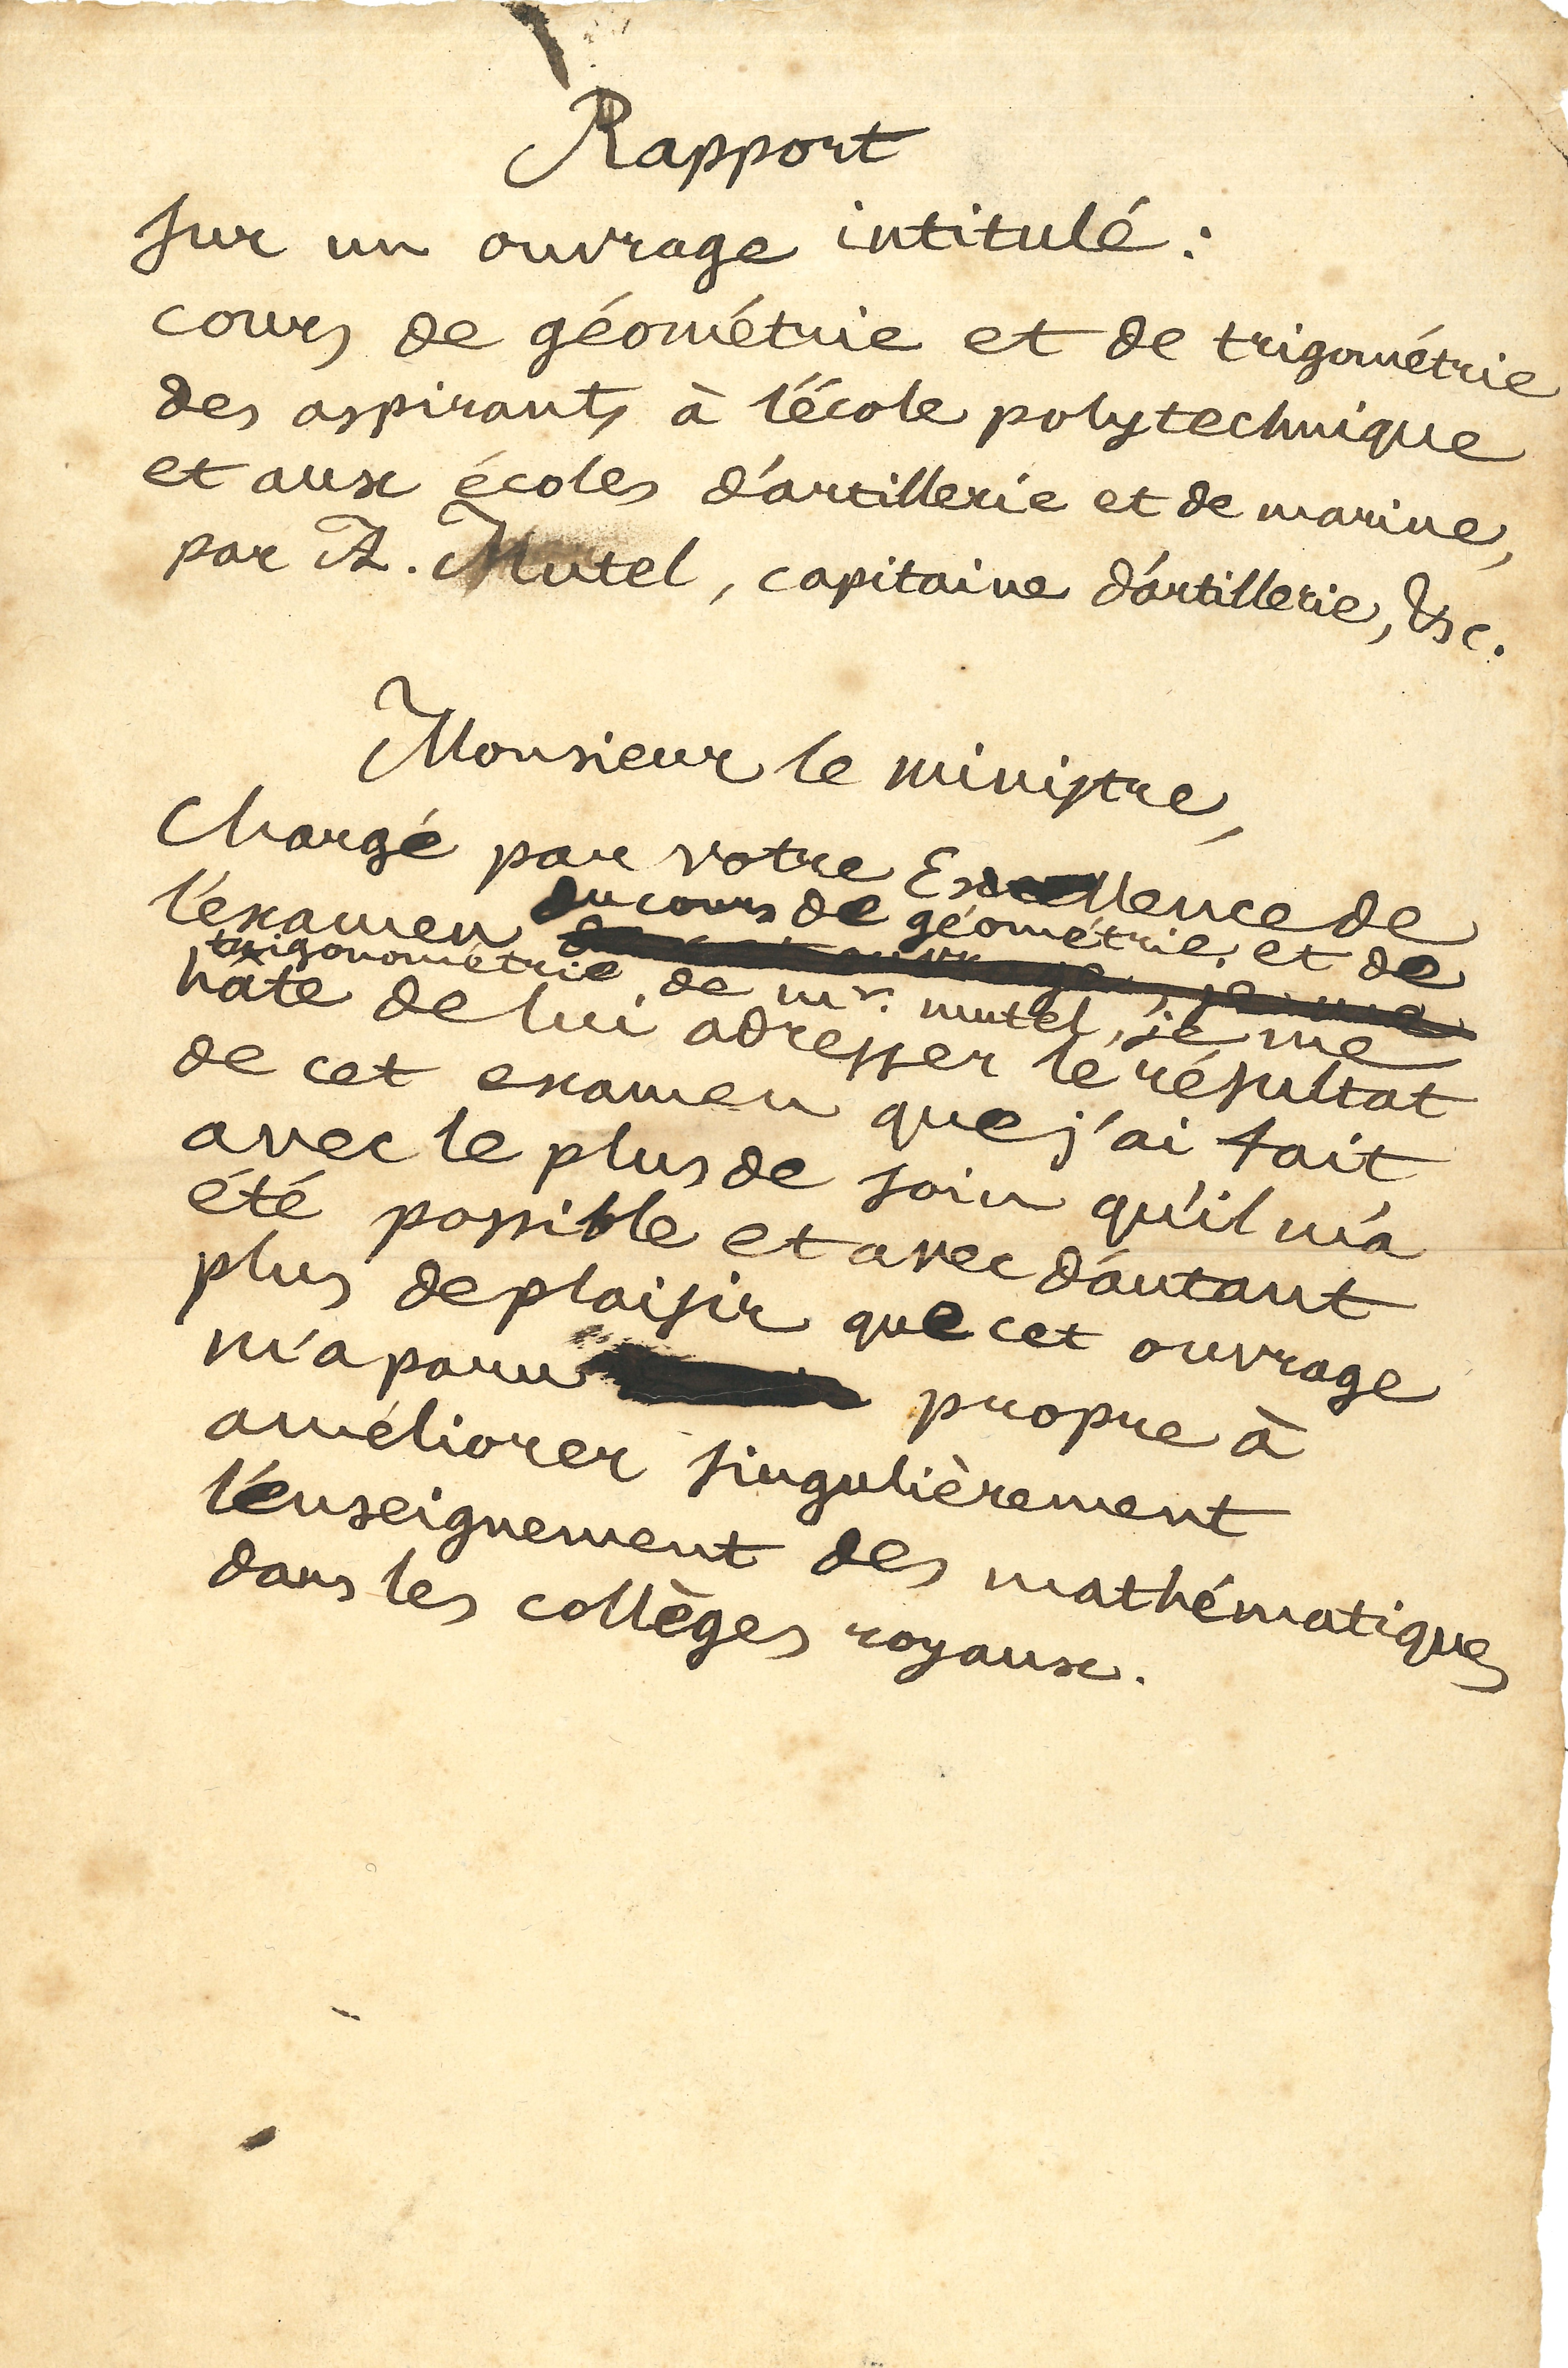 Rapport
sur un ouvrage intitulé :
cours de géométrie et de trigométrie
des aspirants à l'école polytechnique
et aux écoles d'artillerie et de marine,
par A. Mutel, capitaine d'artillerie, &c.
Monsieur le ministre,
Chargé par votre Excellence de
l'examen du cours de géométrie, et de
de cet ouvrage, je me
trigonométrie, de mr. mutel, je me
hâte de lui adresser le résultat
de cet examen que j'ai fait
avec le plus de soin qu'il m'a
été possible et avec d'autant
plus de plaisir que cet ouvrage
m'a paru propre à
améliorer singulièrement
l'enseignement des mathématiques
dans les collèges royaux.